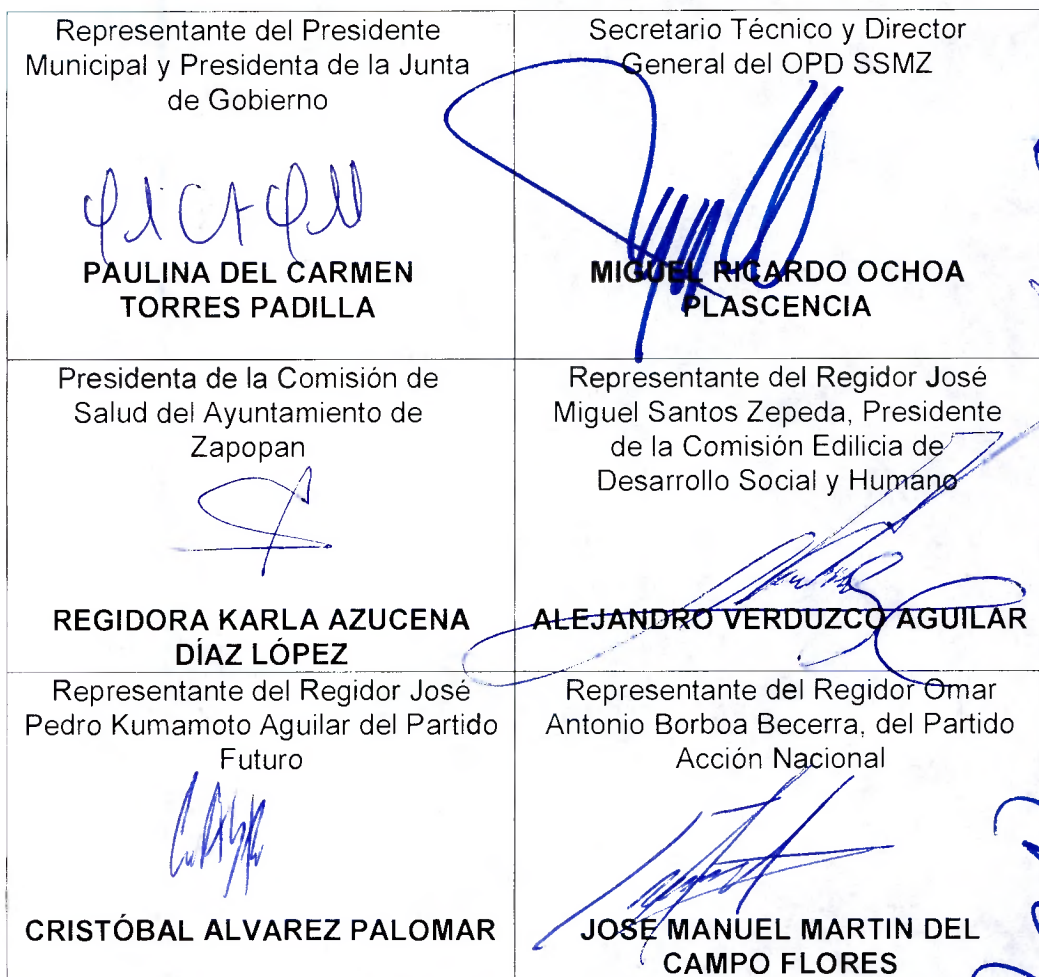 Representante del Presidente
Municipal y Presidenta de la Junta
de Gobierno
PAULINA DEL CARMEN
TORRES PADILLA
Secretario Técnico y Director
General del OPD SSMZ
MIGUEL RICARDO OCHOA
PLASCENCIA
Presidenta de la Comisión de
Salud del Ayuntamiento de
Zapopan
REGIDORA KARLA AZUCENA
DÍAZ LÓPEZ
Representante del Regidor José
Miguel Santos Zepeda, Presidente
de la Comisión Edilicia de
Desarrollo Social y Humano
ALEJANDRO VERDUZCO AGUILAR
Representante del Regidor José
Pedro Kumamoto Aguilar del Partido
Futuro
CRISTÓBAL ALVAREZ PALOMAR
Representante del Regidor Omar
Antonio Borboa Becerra, del Partido
Acción Nacional
JOSE MANUEL MARTIN DEL
CAMPO FLORES